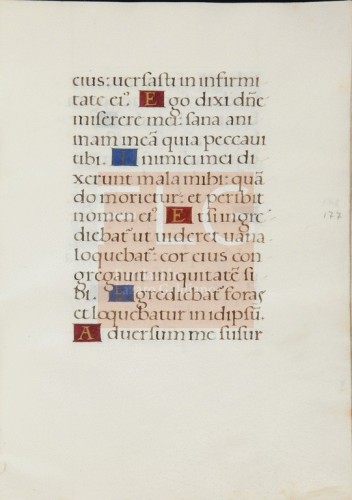 eius: uersasti in infirmi
tate ei9. Ego dixi dñe
miserere mei: sana ani
mam meã quia peccaui
tibi. Inimici mei di
xerunt mala mihi: quã
do morietur: et peribit
nomen ei9. Et si ingre
diebat̃ ut uideret uana
loquebat̃: cor eius con
gregauit iniquitatẽ si
bi. Egrediebat̃ foras
et loquebatur in idipsũ.
Aduersum me susur
177